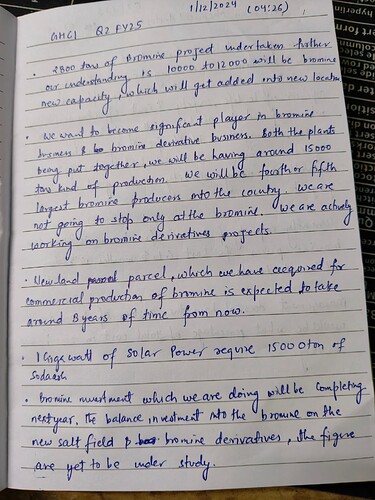 1/12/2024 (04:26)
GHCL Q2 FY25
• 2800 tons of Bromine project undertaken further
our understanding is 10000 to 12000 will be bromine
new capacity, which will get added into new location
• We want to become significant player in bromine
business & bromine derivative business. Both the plants
being put together, we will be having around 15000
tons kind of production. We will be fourth or fifth
largest bromine producers into the country. We are
not going to stop only at the bromine. We are actively
working on bromine derivatives projects.
• New land parcel, which we have acquired for
commercial production of bromine is expected to take
around 3 years of time from now.
• 1 Gigawatt of Solar Power require 15000 ton of
Sodaash
• Bromine investment which we are doing will be completing
next year. The balance investment into the bromine on the
new salt field & bromine derivatives, the figure
are yet to be under study.